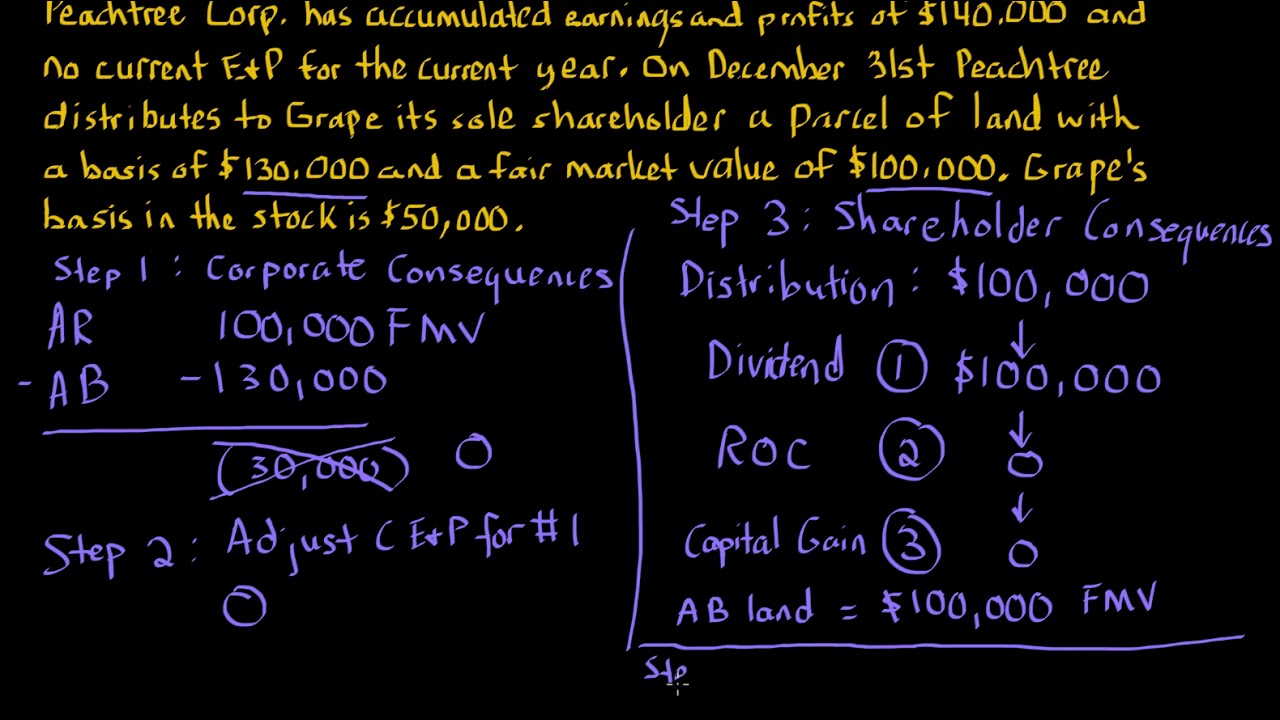 Peachtree Corp. has accumulated earnings and profits of $140,000 and
no current E+P for the current year. On December 31st Peachtree
distributes to Grape its sole shareholder a parcel of land with
a basis of $130,000 and a fair market value of $100,000. Grape's
basis in the stock is $50,000.
Step 1: Corporate Consequences
AR 100,000 FMV
- AB -130,000
(30,000) 0
Step 2: Adjust C E+P for #1
0
Step 3: Shareholder Consequences
Distribution: $100,000
Dividend 1 $100,000
ROC 2 0
Capital Gain 3 0
AB land = $100,000 FMV
Ste